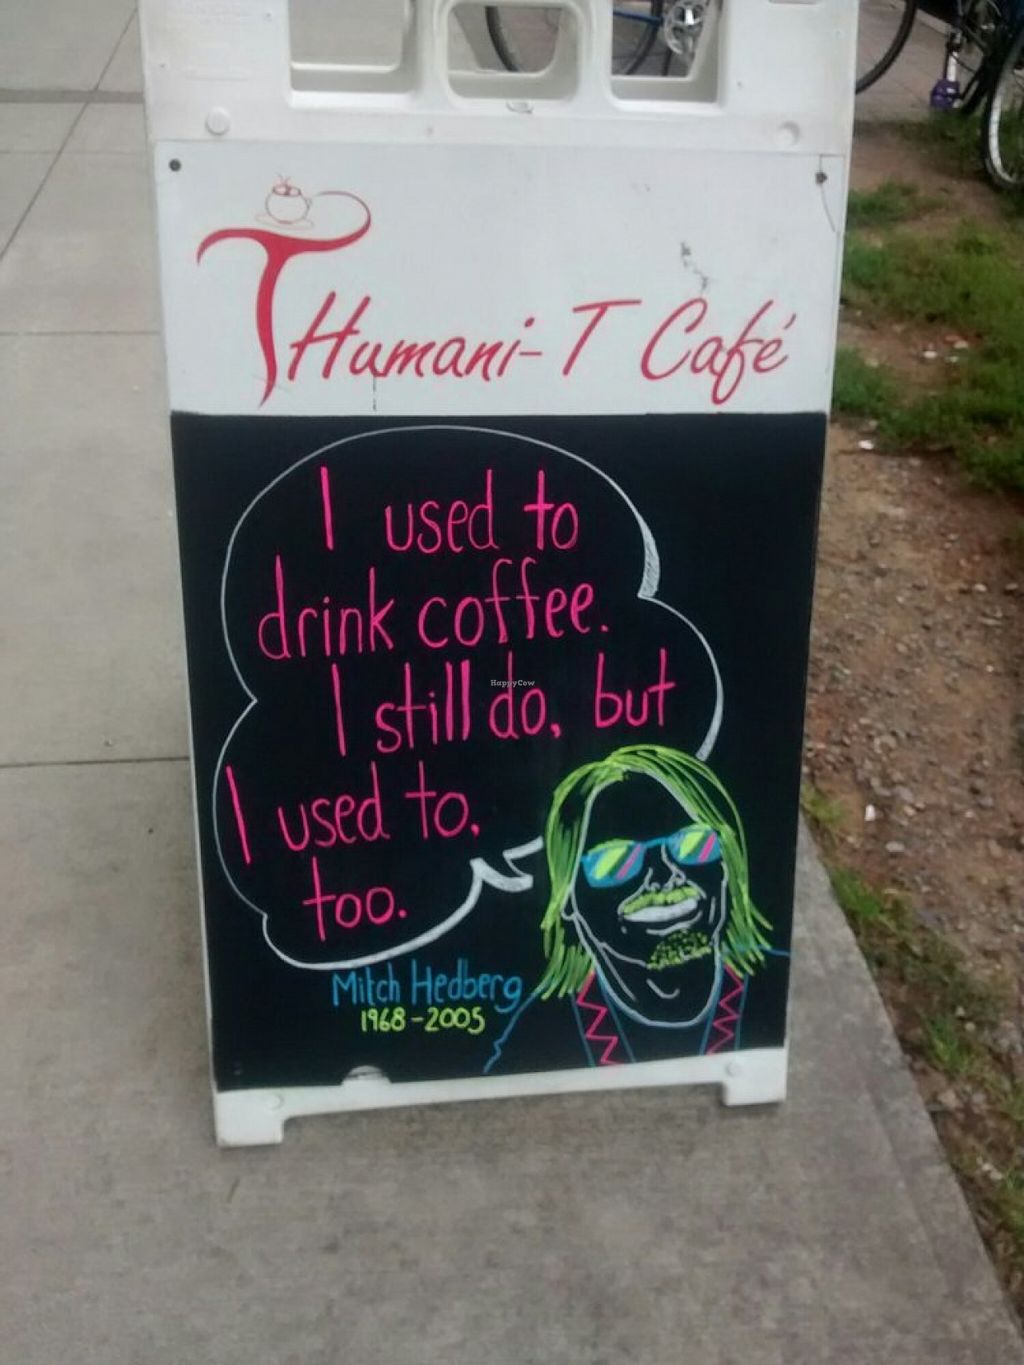 Humani-T Café
I used to
drink coffee.
I still do, but
I used to,
too.
Mitch Hedberg
1968-2005
HappyCow